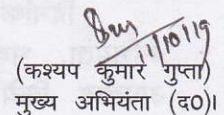 11/10/19
(कश्यप कुमार गुप्ता)
मुख्य अभियंता (द०)।